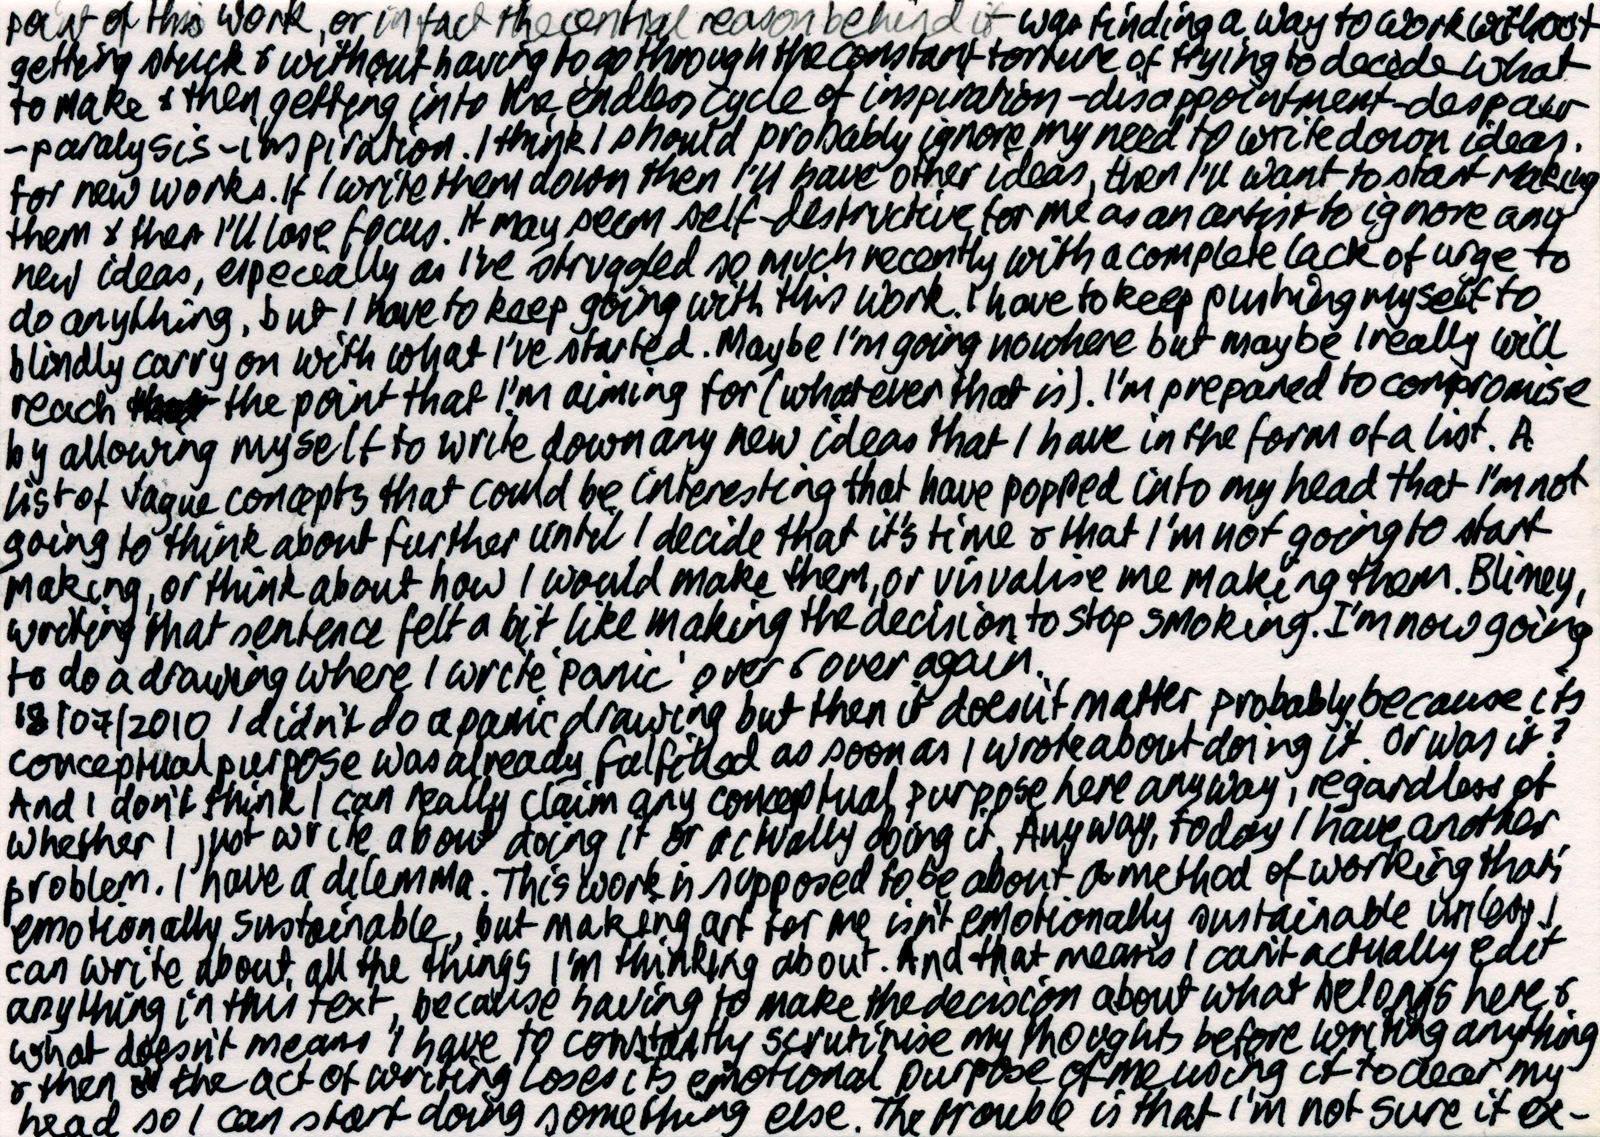 point of this work, or in fact the central reason behind it was finding a way to work without
getting stuck & without having to go through the constant torture of trying to decide what
to make & then getting into the endless cycle of inspiration-disappointment-despair
-paralysis-inspiration. I think I should probably ignore my need to write down ideas.
for new works. If I write them down then I'll have other ideas, then I'll want to start making
them & then I'll lose focus. It may seem self-destructive for me as an artist to ignore any
new ideas, especially as I've struggled so much recently with a complete lack of urge to
do anything, but I have to keep going with this work. I have to keep pushing myself to
blindly carry on with what I've started. Maybe I'm going nowhere but maybe I really will
reach the point that I'm aiming for (whatever that is). I'm prepared to compromise
by allowing myself to write down any new ideas that I have in the form of a list. A
list of vague concepts that could be interesting that have popped into my head that I'm not
going to think about further until I decide that it's time & that I'm not going to start
making, or think about how I would make them, or visualise me making them. Blimey,
writing that sentence felt a bit like making the decision to stop smoking. I'm now going
to do a drawing where I write 'panic' over & over again.
18/07/2010 I didn't do a panic drawing but then it doesn't matter probably because its
conceptual purpose was already fulfilled as soon as I wrote about doing it. Or was it?
And I don't think I can really claim any conceptual purpose here anyway, regardless of
whether I just write about doing it or actually doing it. Anyway, today I have another
problem. I have a dilemma. This work is supposed to be about a method of working that's
emotionally sustainable, but making art for me isn't emotionally sustainable unless I
can write about all the things I'm thinking about. And that means I can't actually edit
anything in this text, because having to make the decision about what belongs here &
what doesn't means I have to constantly scrutinise my thoughts before writing anything
& then the act of writing loses its emotional purpose of me using it to clear my
head so I can start doing something else. The trouble is that I'm not sure it ex-